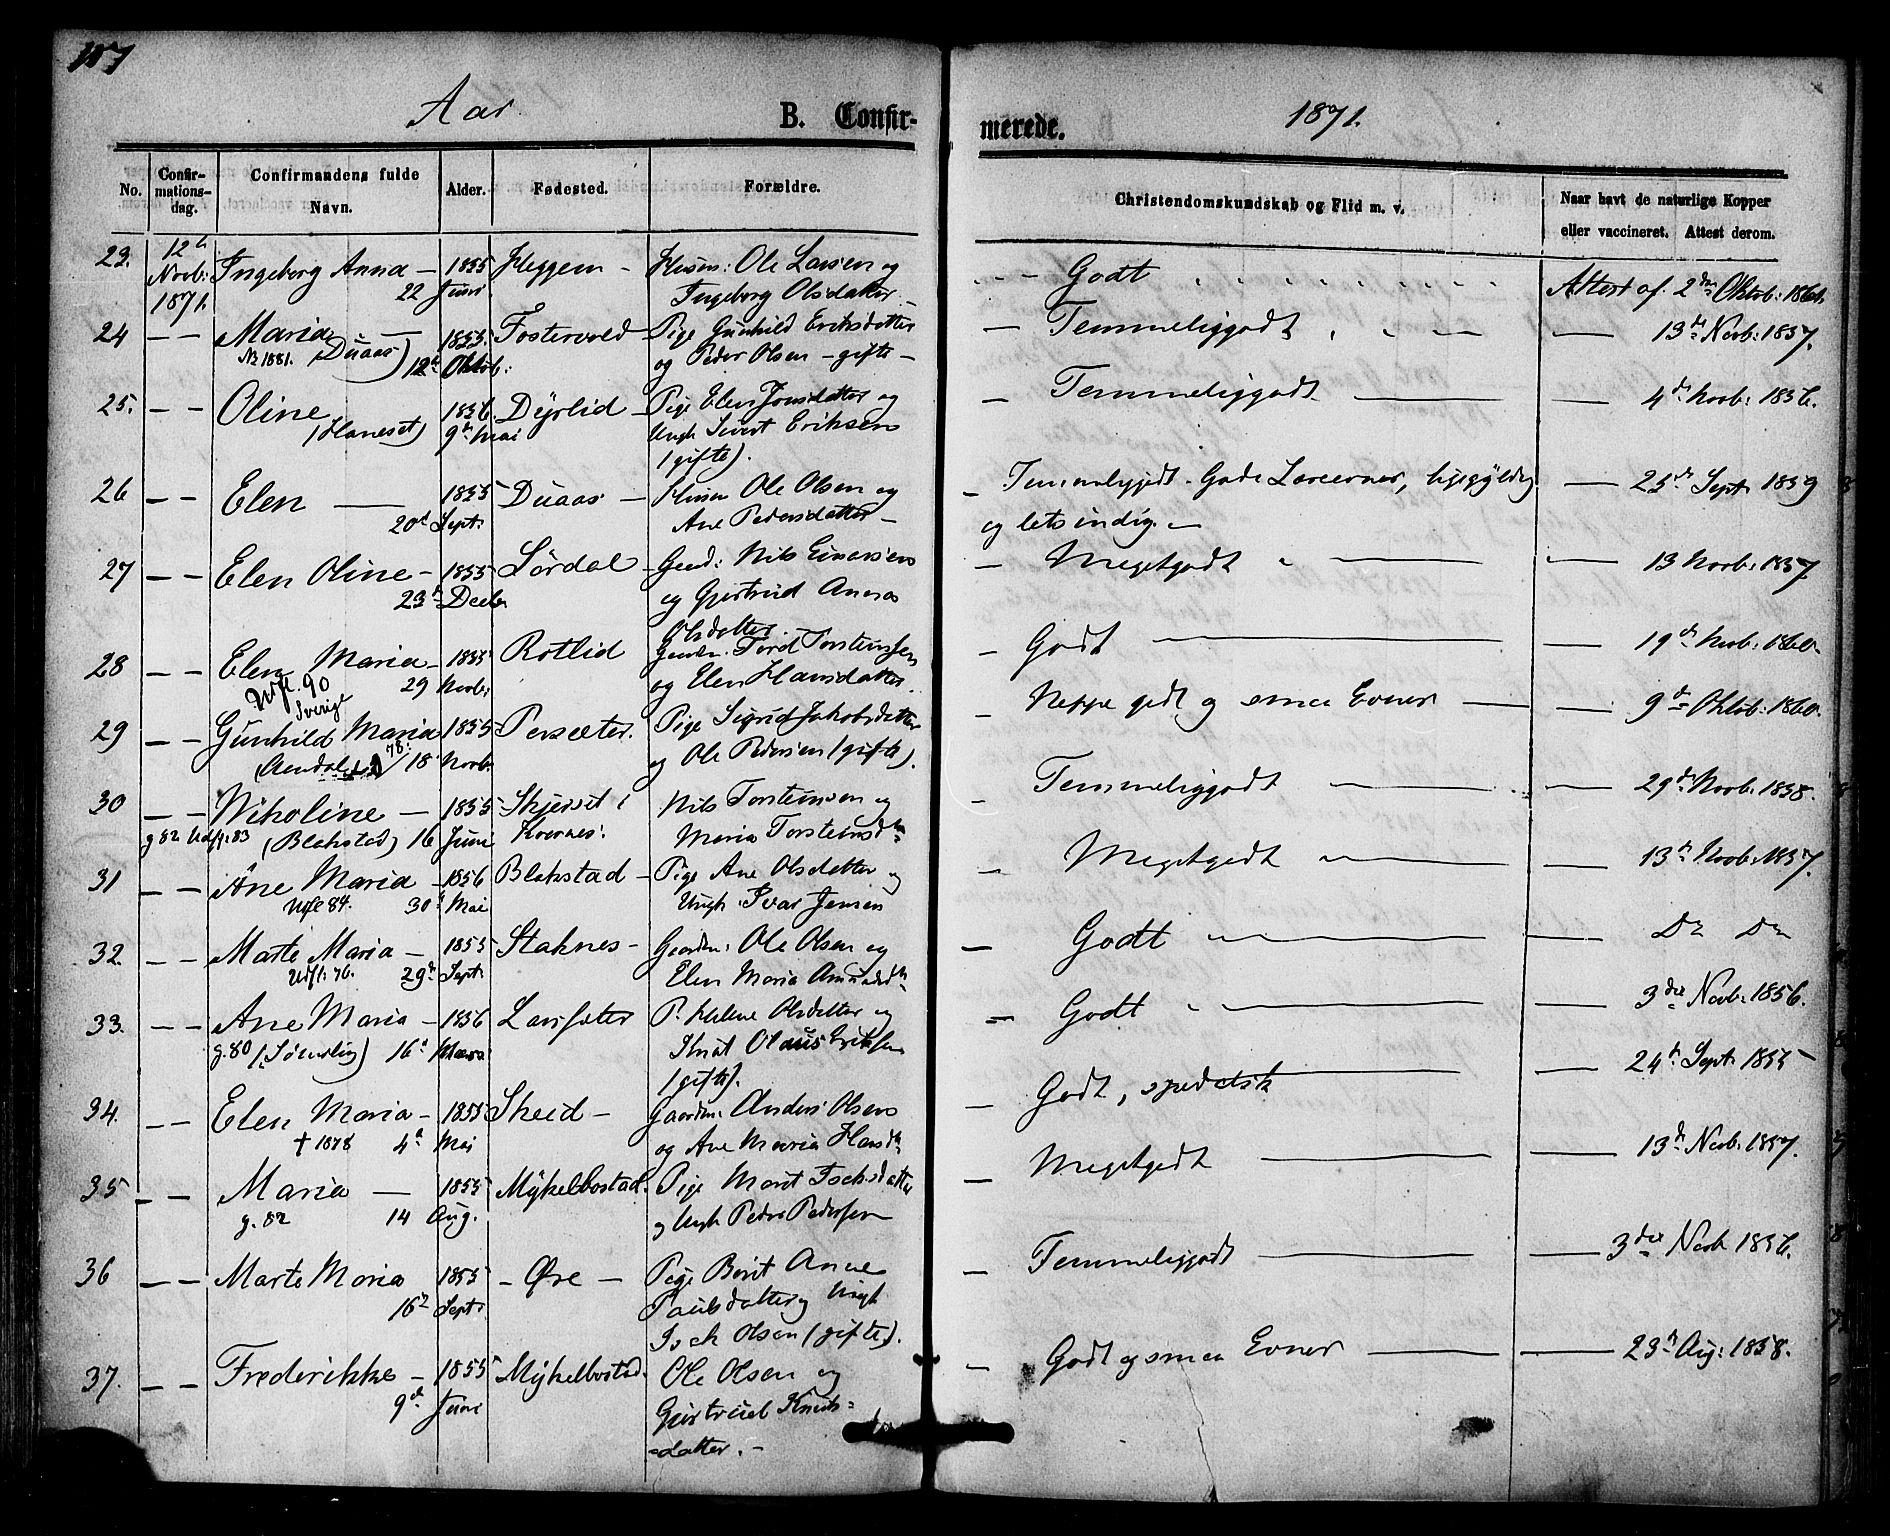 117
Aar B. Confir- merede. 1871.
No. Confir-mations-dag. Confirmandens fulde Navn. Alder. Fødested. Forældre. Christendomskundskab og Flid m. v. Naar havt de naturlige Kopper eller vaccineret. Attest derom.
23. 12te Novb: 1871. Ingeborg Anna — 22 1855 Juni Heggem — Husm: Ole Larsen og Ingeborg Olsdatter — Godt Attest af 2den Oktob: 1861.
24 — — Maria — (Duaas) No 1881. 12te 1855 Oktob: Fostervold — Pige Gunhild Eriksdatter og Peder Olsen — gifte — — Temmeliggodt — 13de Novb: 1857.
25. — — Oline (Haneset) 1856 9de Mai Dyrlid — Pige Elen Jonsdatter og Ungk Sivert Eriksen (gifte). — Temmeliggodt — 4de Novb: 1856.
26 — — Elen — 20d 1855 Sept: Duaas — Husm Ole Olsen og Ane Pedersdatter — — Temmeliggodt. Gode og letsindig. — — 25de Sept: 1859
27 — — Elen Oline — 23d 1855 Decbr Lørdal — Gaard: Nils Einersen og Gjertrud Anna Olsdatter. — Megetgodt — 13 Novb: 1857
28 — — Elen Maria — 29 Udfl. 90 Sverige 1855 Novb: Rotlid Tord Torsteinsen og Elen Hansdatter. — Godt — 19de Novb: 1860.
29 — — Gunhild Maria 18 1855 Novb. Persæter. Pige Sigrid Jakobsdatter og Ole Pedersen (gifte). — Neppe godt og smaa Evner — 9de Oktob: 1860.
30 — — Nikoline — g 82 Udfl: 83 (Blakstad) 16 1855 Juni Skjerset i Kvernes. Nils Torsteinsen og Maria Torsteinsdtr — Temmeliggodt — 29de Novb: 1858.
31 — — Ane Maria — Udfl 84. 30d 1856 Mai Blakstad — Pige Ane Olsdatter og Ungk. Ivar Jensen — Megetgodt — 13de Novb: 1857.
32. — — Marte Maria — Udfl: 76. 29de 1855 Sept: Staknes — Gaardm: Ole Olsen og Elen Maria Amundsdtr — Godt — Do Do
33. — — Ane Maria — g. 80 16d 1856 Marts Larssæter P. Helene Olsdatter og Knut Olaus Eriksen (gifte). — Godt — 3die Novb: 1856.
34. — — Elen Maria — † 1878 4d 1855 Mai Skeid — Gaardm: Anders Olsen og Ane Maria Hansdtr — Godt, spedalsk — 24de Sept: 1855
35 — — Maria — g. 82 14 1855 Aug. Mykelbostad. Pige Marit Isaksdatter og Ungk Peder Pedersen — Megetgodt — 13de Novb: 1857.
36 — — Marte Maria 16de 1855 Sept: — Øre — Pige Berit Anne Paulsdatter og Ungk Isak Olsen (gifte). — Temmeliggodt — 3die Novb 1856.
37. — — Frederikke — 9de 1855 Juni Mykelbostad. Ole Olsen og Gjertrud Knuds-datter. — — Godt og smaa Evner — 23de Aug: 1858.